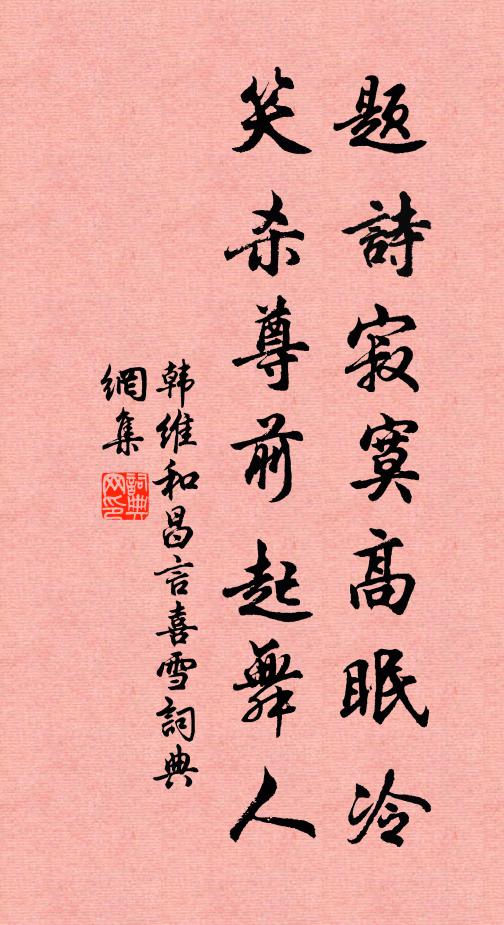 題詩寂寞高眠冷
笑杀尊前起舞人
韩維和昌言喜雪詞典
網集
詞典
网印